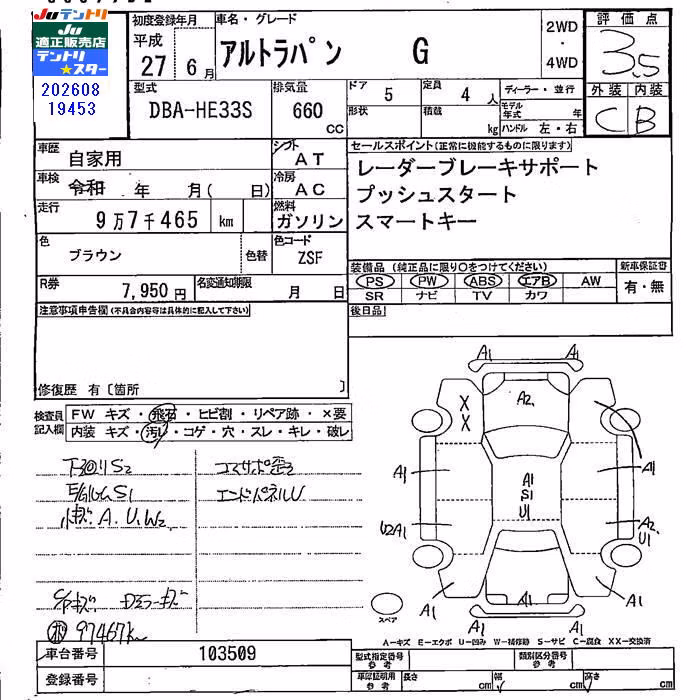 Juテントリ
Ju
適正販売店
テントリ
★スター
202608
19453
初度登録年月
平成
27 6月
車名・グレード
アルトラパン G
2WD
・
4WD
評価点
3.5
外装 内装
C B
型式
DBA-HE33S
排気量
660
cc
ドア 5
定員 4 人
形状
積載 kg
ディーラー・並行
モデル年式 年
ハンドル 左・右
車歴 自家用
シフト AT
車検 令和 年 月( 日)
冷房 AC
走行 9万7千465 km
燃料 ガソリン
色 ブラウン
色替
色コード ZSF
R券 7,950円
名変通知期限 月 日
セールスポイント(正常に機能するものに限ります)
レーダーブレーキサポート
プッシュスタート
スマートキー
装備品(純正品に限り○をつけてください)
PS PW ABS エアB AW
SR ナビ TV カワ
新車保証書
有・無
後日品
注意事項申告欄(不具合内容等は具体的に記入して下さい)
修復歴 有〔箇所 〕
検査員
記入欄
FW キズ・飛石・ヒビ割・リペア跡・×要
内装 キズ・汚れ・コゲ・穴・スレ・キレ・破レ
下回りS2
コアサポ歪
S1
エンドパネルU
小キズ A.U.W2
Dミラーキズ
97467km
A1 A1
X
X
A2
A1 A1
A1
S1
U1
U2A1
A2
U1
A1 A1
A1 A1
スペア
A-キズ E-エクボ U-凹み W-補修跡 S-サビ C-腐食 XX-交換済
車台番号 103509
登録番号
型式指定番号
参考
類別区分番号
参考
車庫証明用
参考
長さ cm 幅 cm 高さ cm